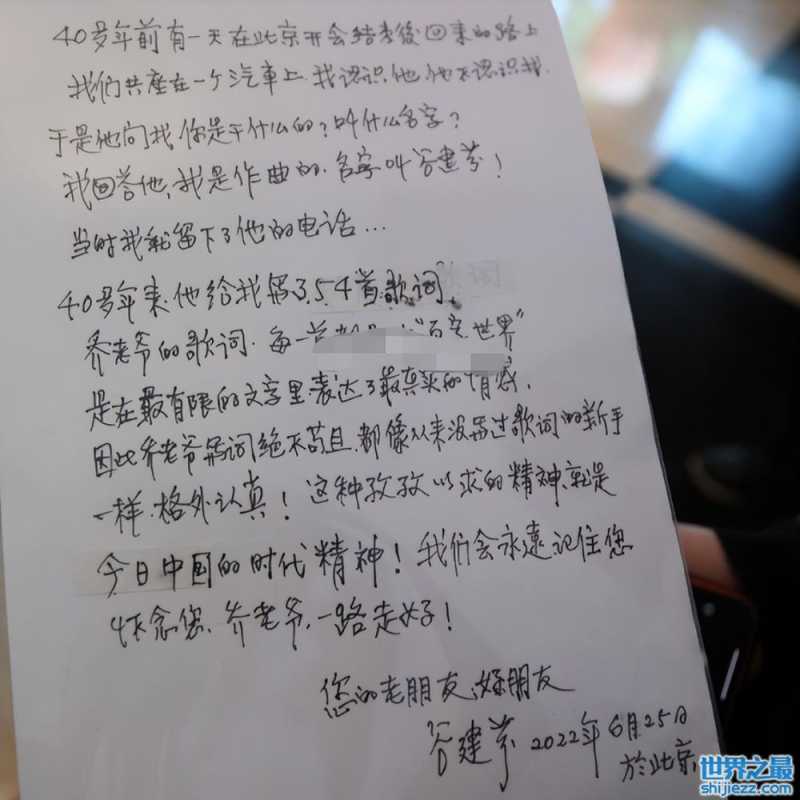 40多年前有一天在北京开会结束後回来的路上
我们共座在一个汽車上.我认识他他不認识我.
于是他问我你是干什么的？叫什么名字？
我回答他，我是作曲的.名字叫谷建芬！
当时我就留下了他的电话...
40多年来.他给我写了54首歌词.
乔老爷的歌词.每一首 世界"
是在最有限的文字里.表达了最真实的情感.
因此乔老爷写词绝不苟且.都像从来没写过歌词的新手
一样.格外认真！这种孜孜以求的精神.就是
今日中国的时代精神！我们会永遠记住您
怀念您、乔老爷、一路走好！
您的老朋友、好朋友
谷建芬 2022年6月25日
於北京
世界之最
shijiezz.com